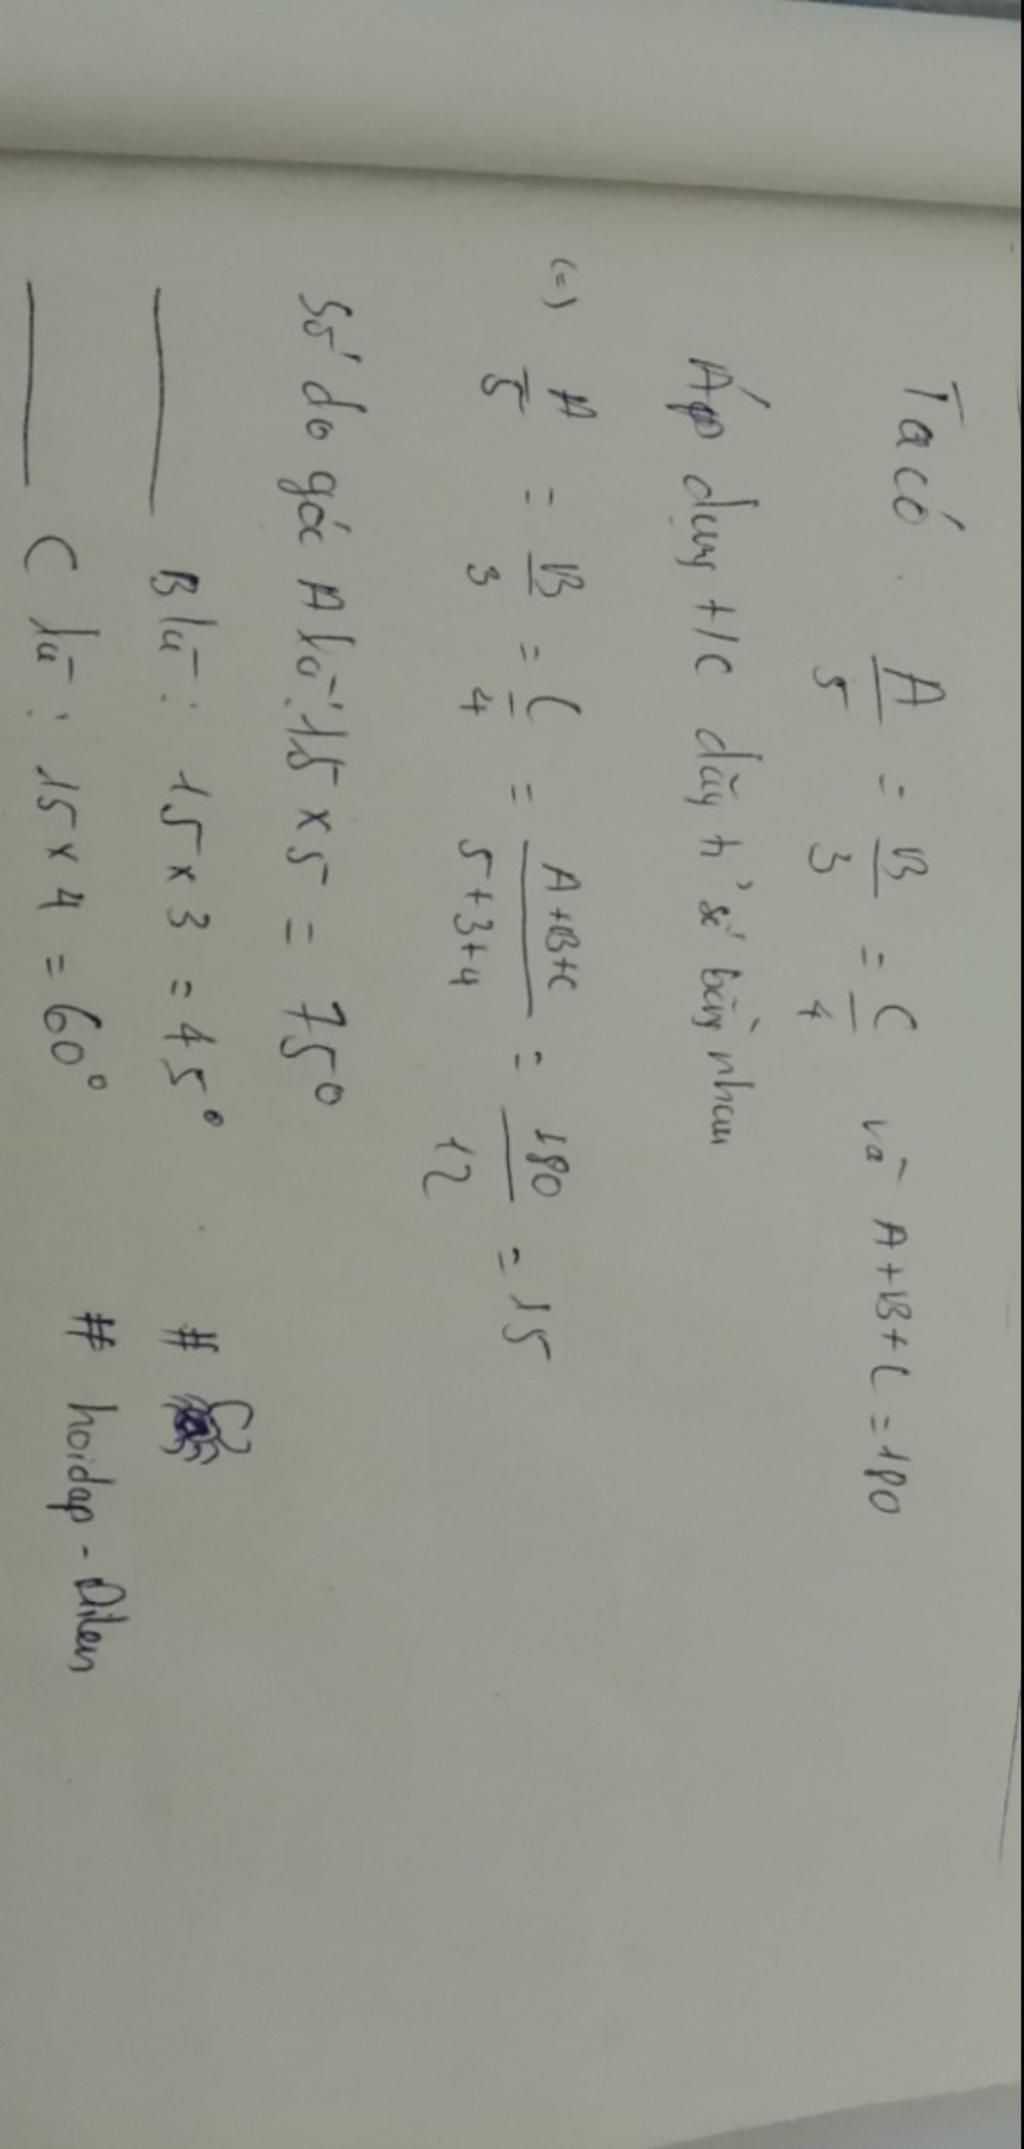 Ta có A/5 = B/3 = C/4 và A+B+C=180
Áp dụng t/c dãy tỉ số bằng nhau
(=) A/5 = B/3 = C/4 = A+B+C/5+3+4 = 180/12 = 15
Số đo góc A là: 15 x 5 = 75°
B là: 15 x 3 = 45° #
C là: 15 x 4 = 60° # hoidap-